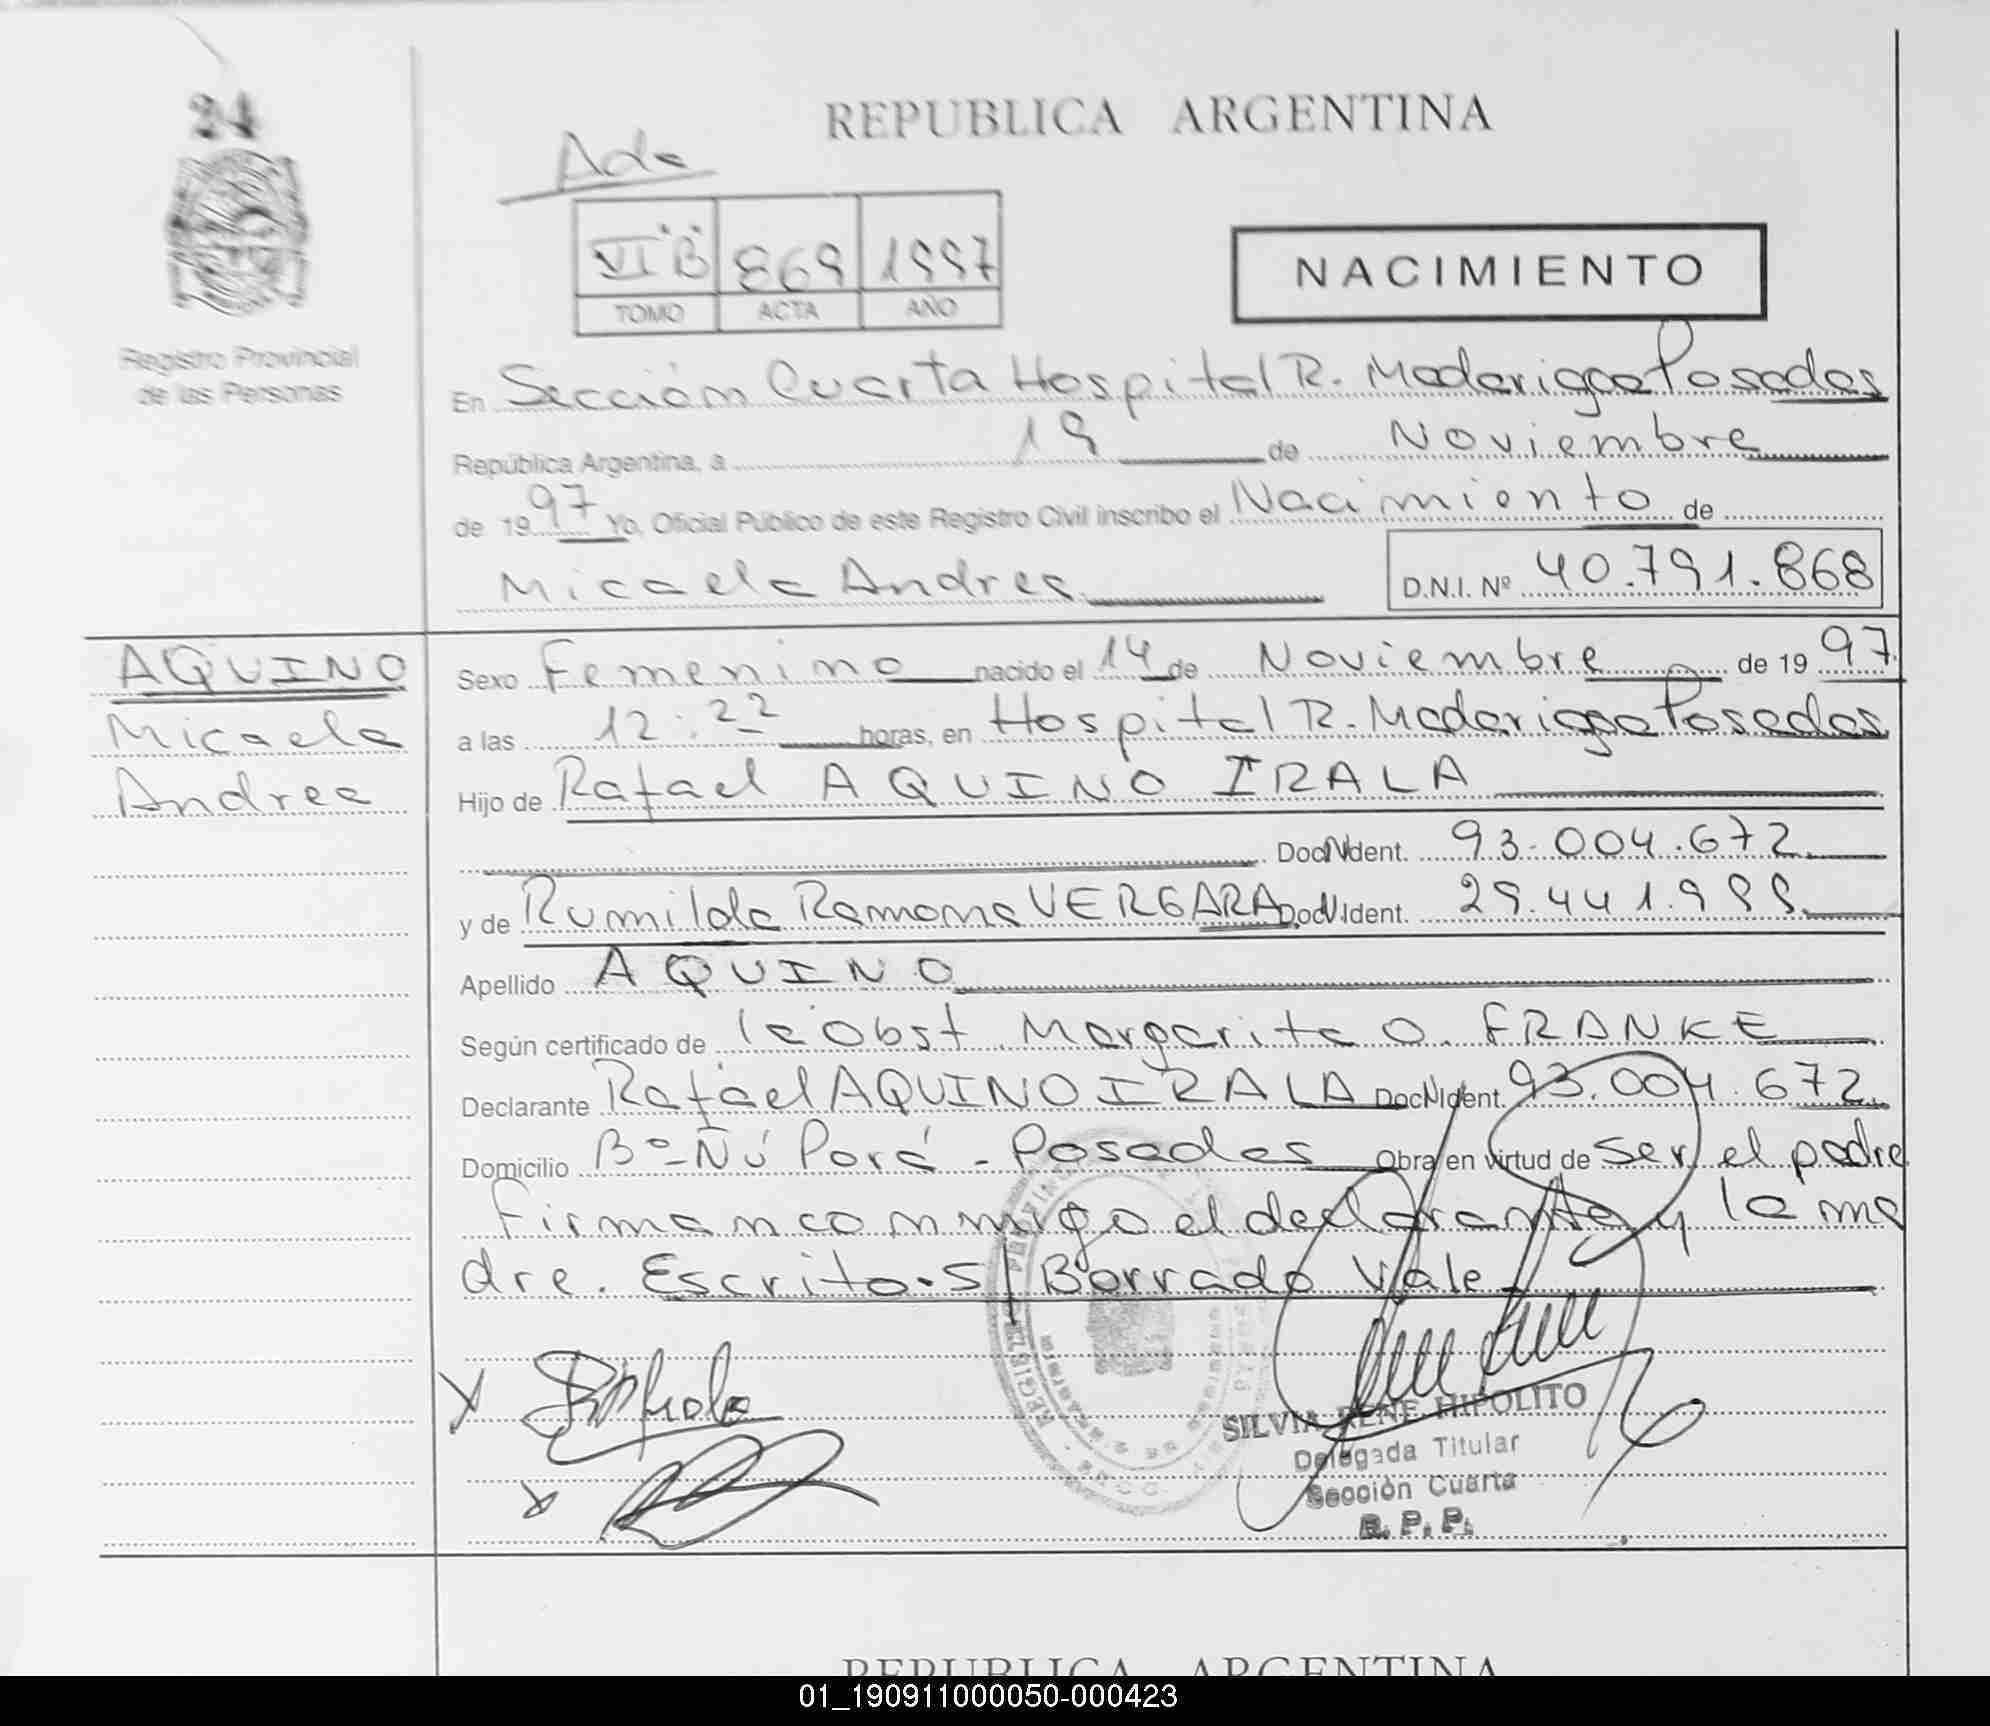 24
REPUBLICA ARGENTINA
Ada
VI "B" 869 1997
TOMO ACTA AÑO
NACIMIENTO
Registro Provincial
de las Personas
En Sección Cuarta Hospital R. Madariaga Posadas
República Argentina, a 19 de Noviembre
de 1997 Yo, Oficial Público de este Registro Civil inscribo el Nacimiento de
Micaela Andrea D.N.I. Nº 40.791.868
AQUINO
Micaela
Andrea
Sexo Femenino nacido el 14 de Noviembre de 1997
a las 12:22 horas, en Hospital R. Madariaga Posadas
Hijo de Rafael AQUINO IRALA
Doc. Ident. 93.004.672
y de Rumilda Ramona VERGARA Doc. Ident.
Apellido AQUINO
Según certificado de la Obst. Margarita O. FRANKE
Declarante Rafael AQUINO IRALA Doc. Ident. 93.004.672
Domicilio Bº Ñú Porá - Posadas Obra en virtud de ser el padre
Firman conmigo el declarante y la ma
dre. Escrito S/ Borrado Vale
SILVIA RENE HIPOLITO
Delegada Titular
Sección Cuarta
R. P. P.
REPUBLICA ARGENTINA
01_190911000050-000423